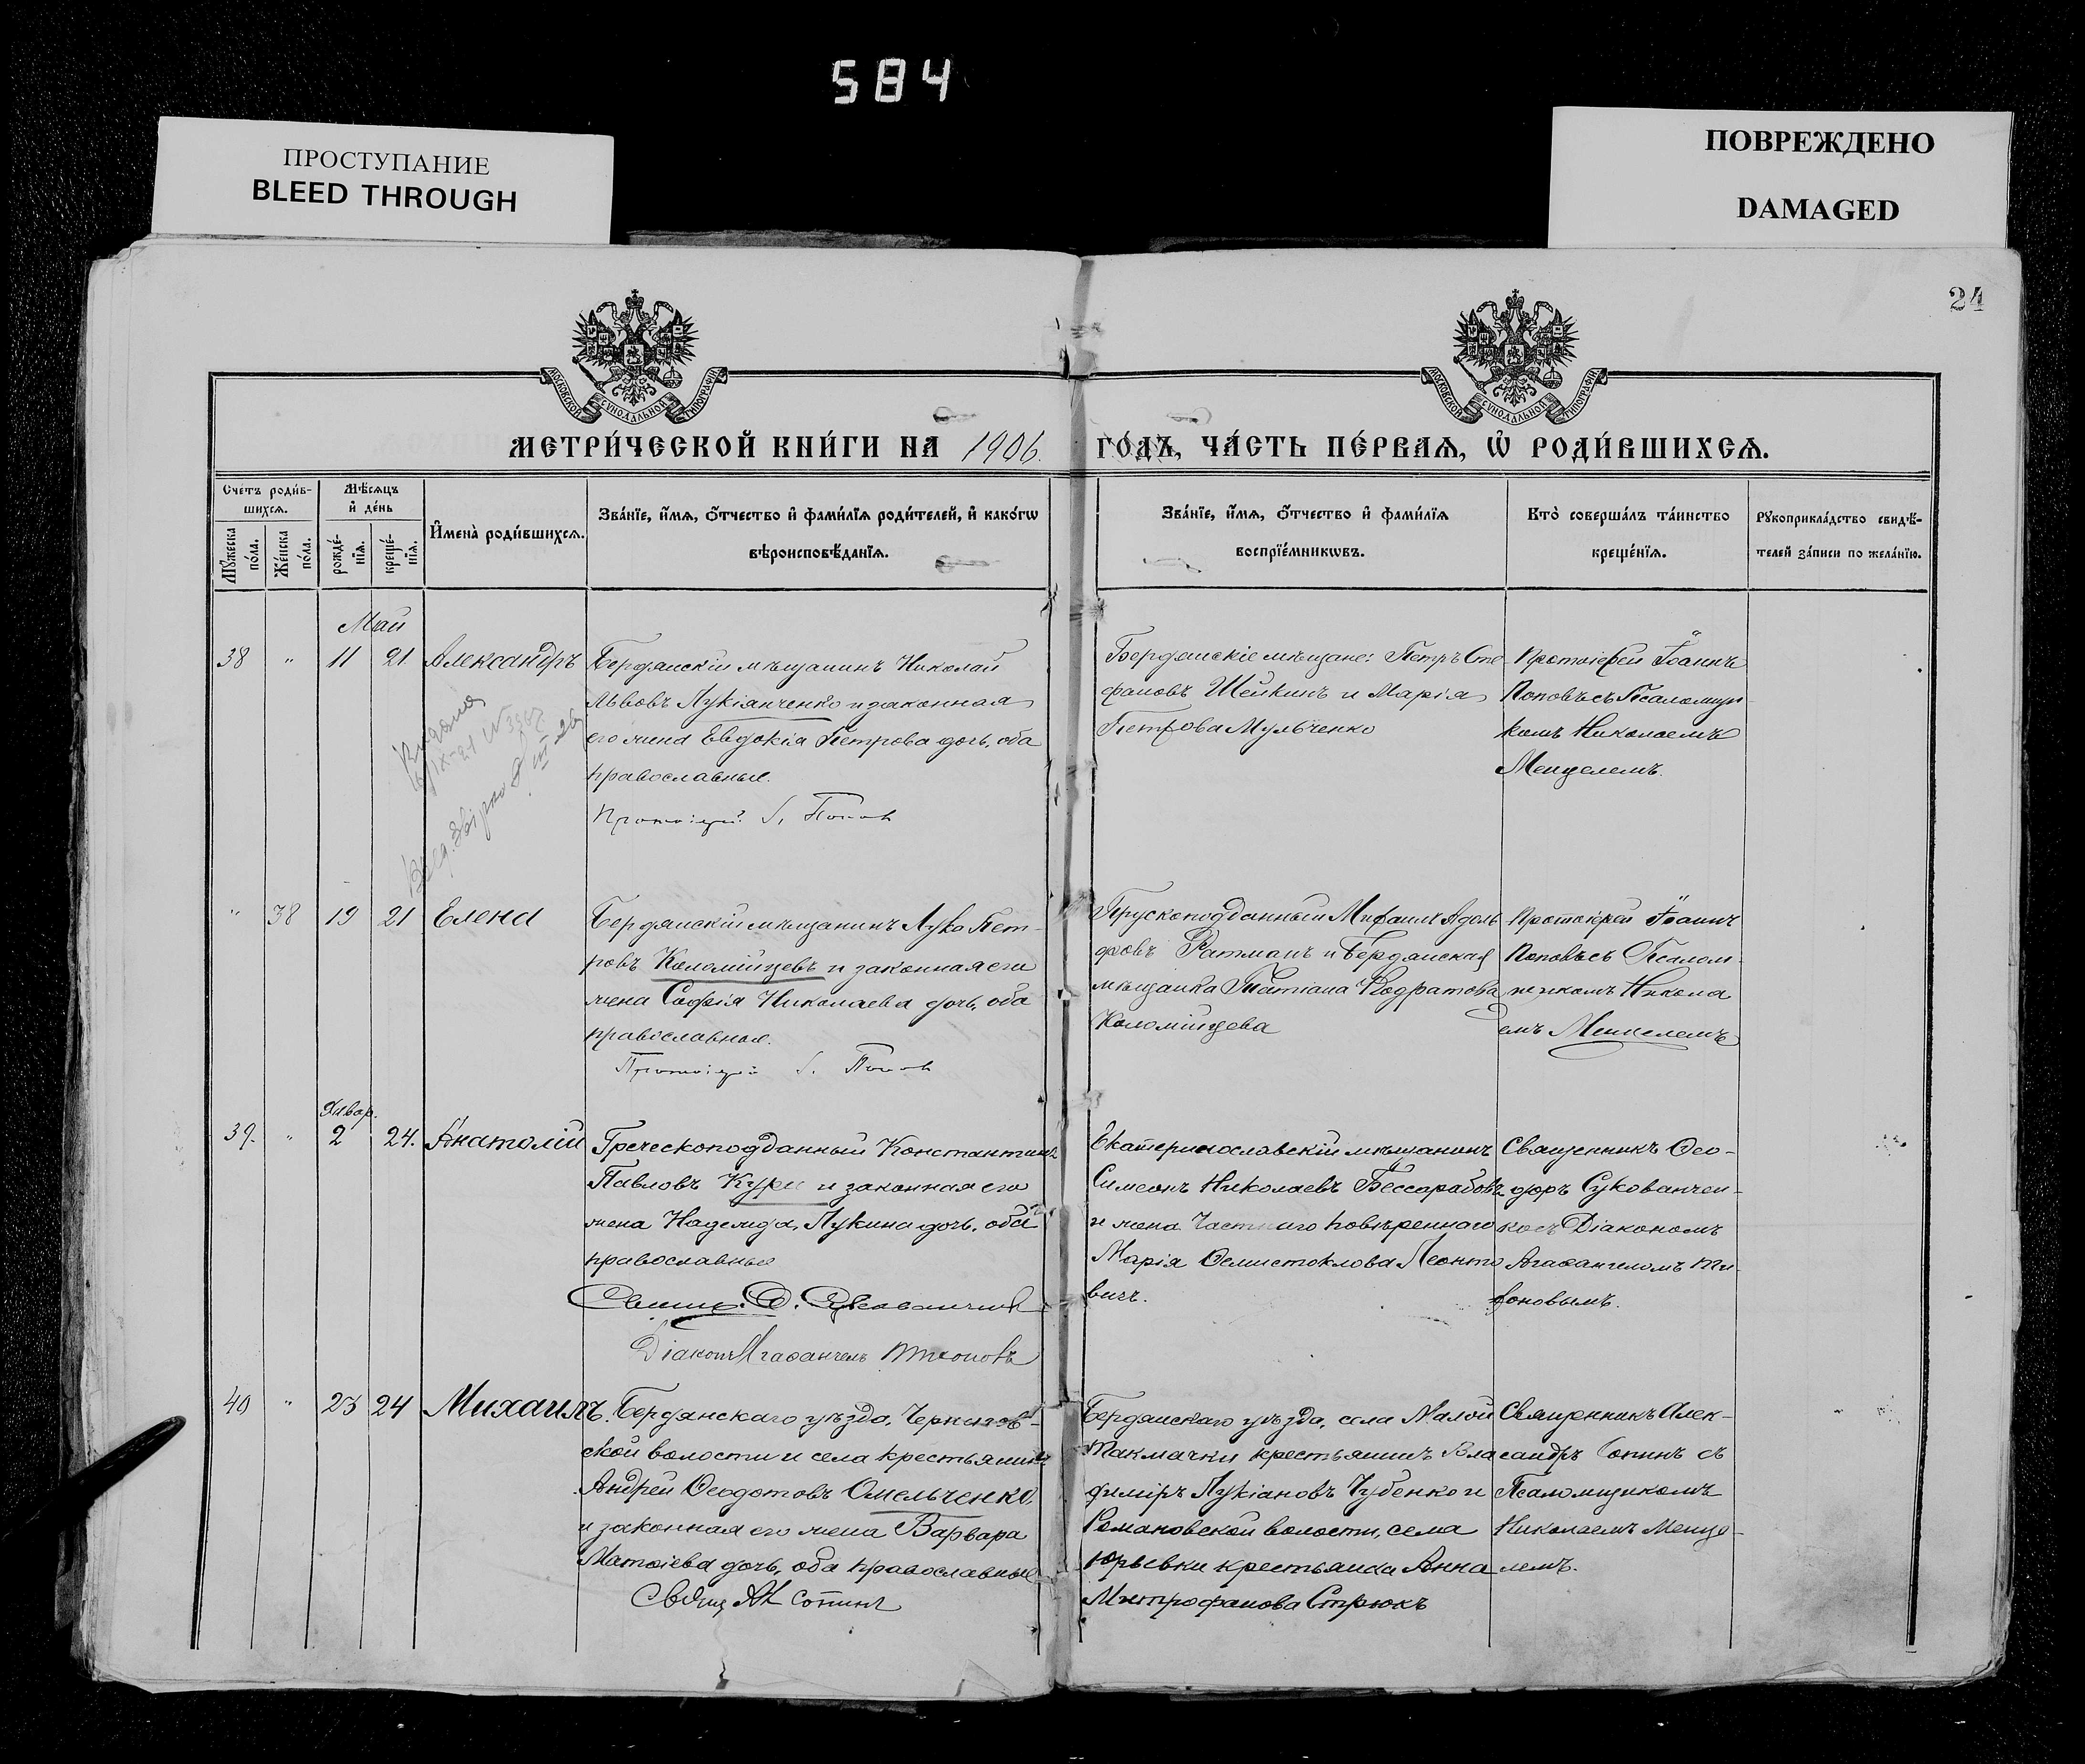 584
ПРОСТУПАНИЕ
BLEED THROUGH
ПОВРЕЖДЕНО
DAMAGED
24
МОСКОВСКОЙ СѴНОДАЛЬНОЙ ТИПОГРАФІИ
МОСКОВСКОЙ СѴНОДАЛЬНОЙ ТИПОГРАФІИ
МЕТРИ́ЧЕСКОЙ КНИ́ГИ НА 1906. ГО́ДЪ, ЧА́СТЬ ПЕ́РВАѦ, Ѡ҆ РОДИ́ВШИХСѦ.
Сче́тъ роди́в-
шихсѧ.
Мужеска по́ла.
Же́нска по́ла.
Мѣ́сѧцъ
и҆ де́нь
рожде́-
нїѧ.
креще́-
нїѧ.
И҆мена̀ роди́вшихсѧ.
Зва́нїе, и҆́мѧ, ѻ҆́тчество и҆ фами́лїѧ роди́телей, и҆ како́гѡ
вѣроисповѣ́данїѧ.
Зва́нїе, и҆́мѧ, ѻ҆́тчество и҆ фами́лїѧ
воспрїе́мникѡвъ.
Кто̀ соверша́лъ та́инство
креще́нїѧ.
Рꙋкоприкла́дство свидѣ́-
телей за́писи по жела́нїю.
Май
38 " 11 21 Александръ
Бердянскій мѣщанинъ Николай
Львовъ Лукіянченко и законная
его жена Евдокія Петрова дочь, оба
православные.
Протоіерей І. Попов
Бердянскіе мѣщане: Петръ Сте
фановъ Шейкинъ и Марія
Петрова Мульченко
Протоіерей Іоаннъ
Поповъ съ Псаломщи
комъ Николаемъ
Менцелемъ.
Видана
" 38 19 21 Елена
Бердянскій мѣщанинъ Лука Пет-
ровъ Коломійцевъ и законная его
жена Софія Николаева дочь, оба
православные.
Протоіерей І. Попов
Прускоподданный Михаилъ Адоль
фовъ Ратманъ и Бердянская
мѣщанка Татіана Кодратова
Коломійцева
Протоіерей Іоаннъ
Поповъ съ Псалом-
щикомъ Никола
емъ Менцелемъ
Январ.
39. " 2 24. Анатолій
Греческоподданный Константинъ
Павловъ Кури и законная его
жена Надежда, Лукина дочь, оба
православные
Свящ. Ѳ. Сукованченко
Діаконъ Агаѳангелъ Тихоновъ
Екатеринославскій мѣщанинъ
Симеонъ Николаевъ Бессарабовъ
и жена Частнаго повѣреннаго
Марія Ѳемистоклова Леонто
вичъ.
Священникъ Ѳео-
доръ Сукованчен-
ко съ Діакономъ
Агаѳангеломъ Ти-
хоновымъ.
40 " 23 24 Михаилъ.
Бердянскаго уѣзда, Чернигов-
ской волости и села крестьянинъ
Андрей Ѳеодотовъ Омельченко,
и законная его жена Варвара
Матѳіева дочь, оба православные
Свящ. Ал. Сопинъ
Бердянскаго уѣзда, села Малой
Такмачки крестьянинъ Вла
диміръ Лукіановъ Чубенко и
Романовской волости, села
Юрьевки крестьянка Анна
Митрофанова Стрюкъ
Священникъ Алек-
сандръ Сопинъ съ
Псаломщикомъ
Николаемъ Менце-
лемъ.